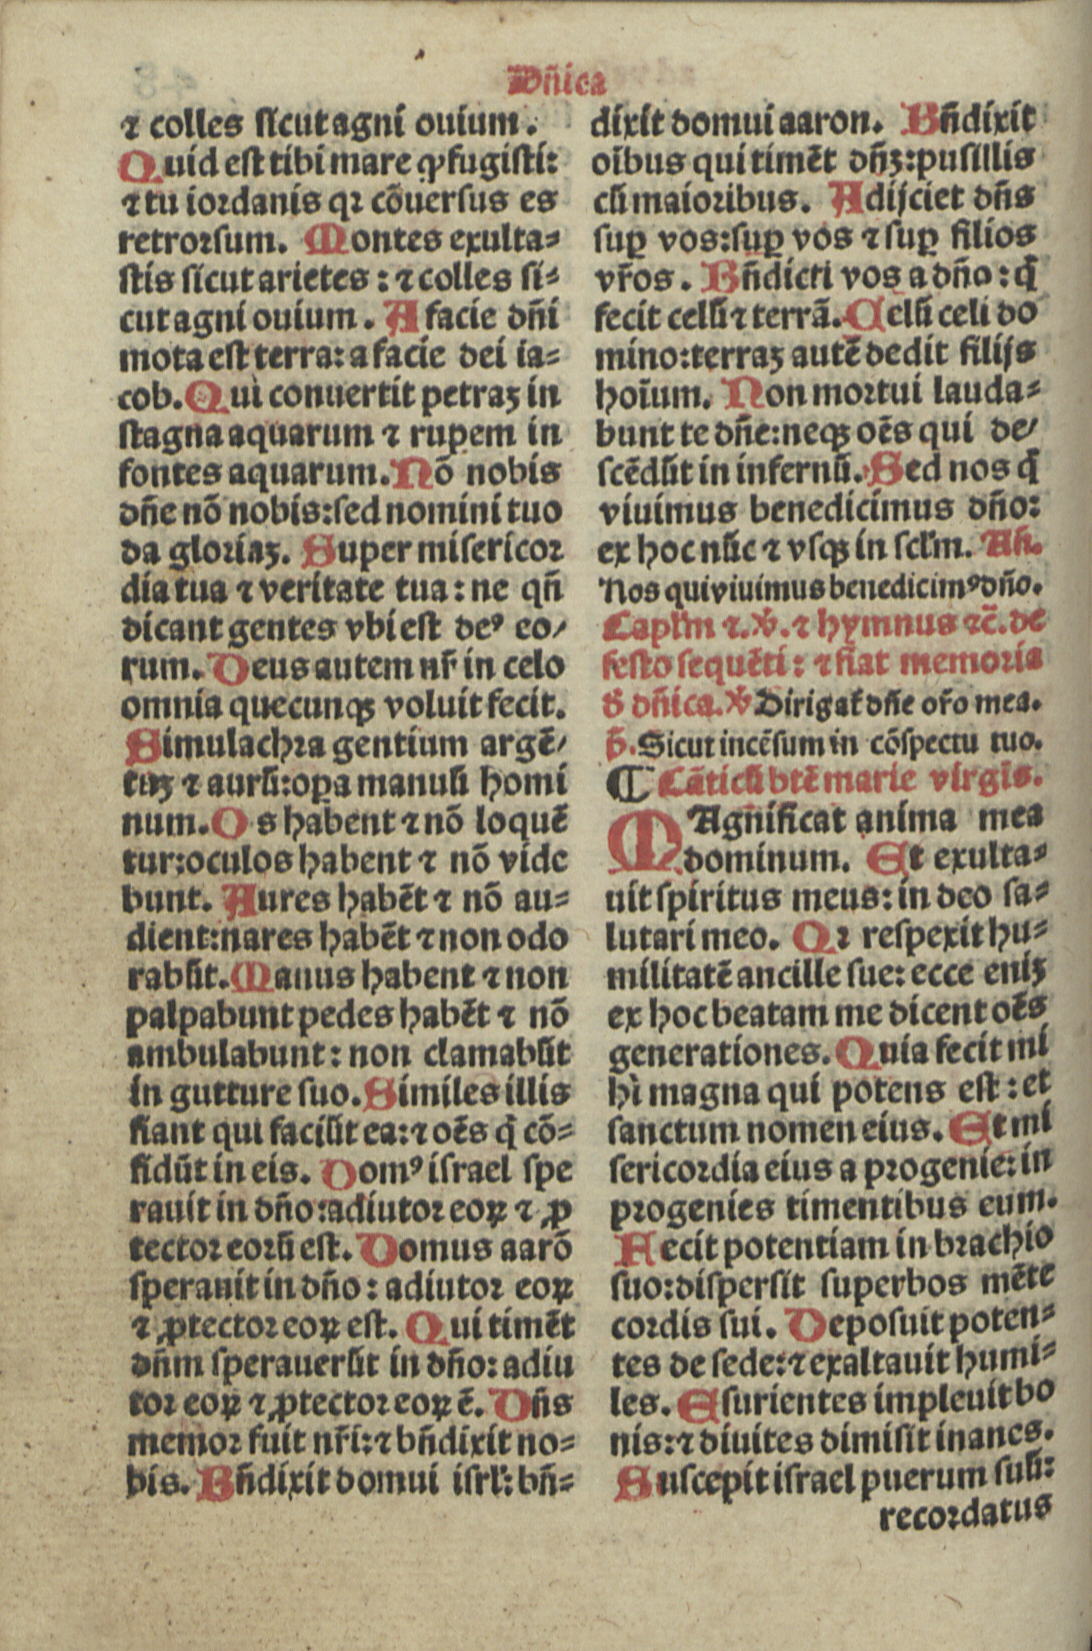 Dñica
⁊ colles sicut agni ouium.
Quid est tibi mare ꝙ fugisti:
⁊ tu iordanis qꝛ cōuersus es
retrorsum. Montes exulta=
stis sicut arietes: ⁊ colles si=
cut agni ouium. A facie dñi
mota est terra: a facie dei ia=
cob. Qui conuertit petraꝫ in
stagna aquarum ⁊ rupem in
fontes aquarum. Nō nobis
dñe nō nobis: sed nomini tuo
da gloriaꝫ. Super misericor
dia tua ⁊ veritate tua: ne qñ
dicant gentes vbi est deꝰ eo/
rum. Deus autem nr̄ in celo
omnia quecunqꝫ voluit fecit.
Simulachra gentium argē/
tuꝫ ⁊ aurū: oꝑa manuū homi
num. Os habent ⁊ nō loquē
tur: oculos habent ⁊ nō vide
bunt. Aures habēt ⁊ nō au=
dient: nares habēt ⁊ non odo
rabūt. Manus habent ⁊ non
palpabunt pedes habēt ⁊ nō
ambulabunt: non clamabūt
in gutture suo. Similes illis
fiant qui faciūt ea: ⁊ oēs q̄ cō=
fidūt in eis. Domꝰ israel spe
rauit in dño: adiutor eoꝝ ⁊ ꝓ
tector eorū est. Domus aarō
sperauit in dño: adiutor eoꝝ
⁊ ꝓtector eoꝝ est. Qui timēt
dñm sperauerūt in dño: adiu
tor eoꝝ ⁊ ꝓtector eoꝝ ē. Dñs
memor fuit nr̄i: ⁊ bñdixit no=
bis. Bñdixit domui isrl̄: bñ=
dixit domui aaron. Bñdixit
oībus qui timēt dñꝫ: pusillis
cū maioribus. Adijciet dñs
suꝑ vos: suꝑ vos ⁊ suꝑ filios
vr̄os. Bñdicti vos a dño: q̄
fecit celū ⁊ terrā. Celū celi do
mino: terraꝫ autē dedit filijs
hoīum. Non mortui lauda=
bunt te dñe: neqꝫ oēs qui de/
scēdūt in infernū. Sed nos q̄
viuimus benedicimus dño:
ex hoc nūc ⁊ vsqꝫ in scl̄m. Añ.
Nos qui viuimus benedicimꝰ dño.
Capl̄m ⁊. ℣. ⁊ hymnus ⁊c̄. de
festo sequēti: ⁊ fiat memoria
d̄ dñica. ℣ Dirigat̄ dñe or̄o mea.
p̄. Sicut incēsum in cōspectu tuo.
¶ Cāticū btē marie virgīs.
MAgnificat anima mea
dominum. Et exulta=
uit spiritus meus: in deo sa=
lutari meo. Qꝛ respexit hu=
militatē ancille sue: ecce eniꝫ
ex hoc beatam me dicent oēs
generationes. Quia fecit mi
hi magna qui potens est: et
sanctum nomen eius. Et mi
sericordia eius a progenie: in
progenies timentibus eum.
Fecit potentiam in brachio
suo: dispersit superbos mēte
cordis sui. Deposuit poten=
tes de sede: ⁊ exaltauit humi=
les. Esurientes impleuit bo
nis: ⁊ diuites dimisit inanes.
Suscepit israel puerum suū:
recordatus